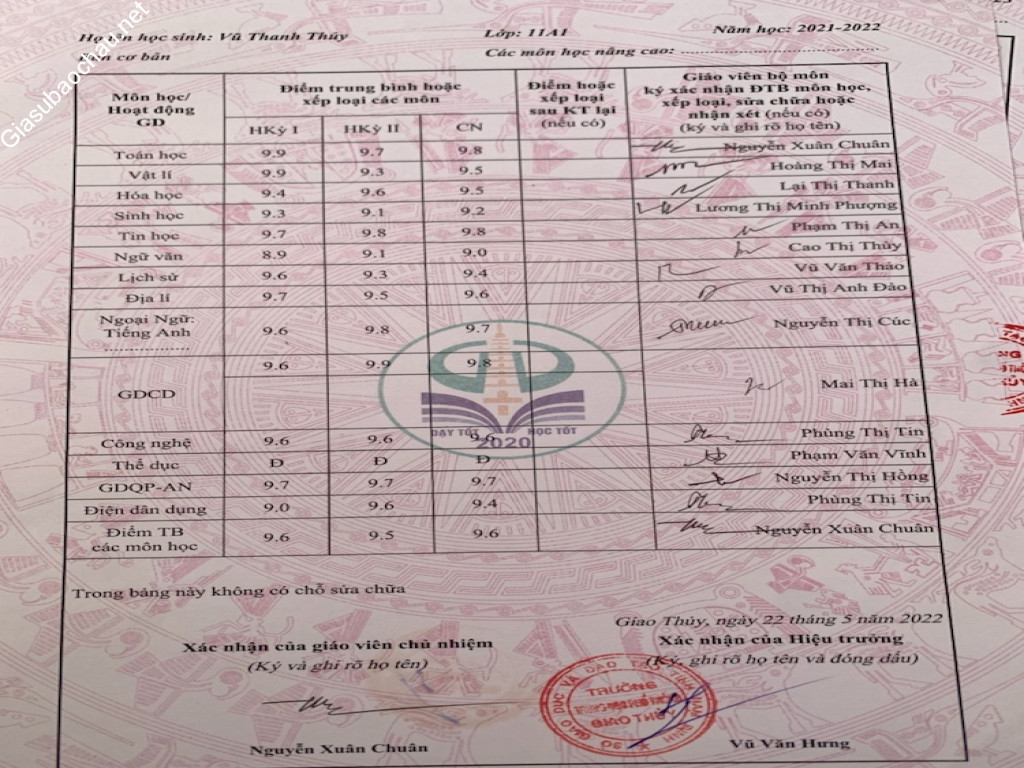 Giasubaochau.net
Họ tên học sinh: Vũ Thanh Thúy Lớp: 11A1 Năm học: 2021-2022
cơ bản Các môn học nâng cao: ............
Môn học/ Hoạt động GD
Điểm trung bình hoặc xếp loại các môn
Điểm hoặc xếp loại sau KT lại (nếu có)
Giáo viên bộ môn ký xác nhận ĐTB môn học, xếp loại, sửa chữa hoặc nhận xét (nếu có) (ký và ghi rõ họ tên)
HKỳ I HKỳ II CN
Toán học 9.9 9.7 9.8 Nguyễn Xuân Chuân
Vật lí 9.9 9.3 9.5 Hoàng Thị Mai
Hóa học 9.4 9.6 9.5 Lại Thị Thanh
Sinh học 9.3 9.1 9.2 Lương Thị Minh Phượng
Tin học 9.7 9.8 9.8 Phạm Thị An
Ngữ văn 8.9 9.1 9.0 Cao Thị Thủy
Lịch sử 9.6 9.3 9.4 Vũ Văn Thảo
Địa lí 9.7 9.5 9.6 Vũ Thị Anh Đào
Ngoại Ngữ:
Tiếng Anh 9.6 9.8 9.7 Nguyễn Thị Cúc
....................
GDCD 9.6 9.9 9.8 Mai Thị Hà
DẠY TỐT HỌC TỐT
2020
Công nghệ 9.6 9.6 Phùng Thị Tin
Thể dục Đ Đ Đ Phạm Văn Vĩnh
GDQP-AN 9.7 9.7 9.7 Nguyễn Thị Hồng
Điện dân dụng 9.0 9.6 9.4 Phùng Thị Tin
Điểm TB
các môn học 9.6 9.5 9.6 Nguyễn Xuân Chuân
Trong bảng này không có chỗ sửa chữa
Giao Thủy, ngày 22 tháng 5 năm 2022
Xác nhận của giáo viên chủ nhiệm Xác nhận của Hiệu trưởng
(Ký và ghi rõ họ tên) (Ký, ghi rõ họ tên và đóng dấu)
TRƯỜNG
GIAO THỦY
Nguyễn Xuân Chuân Vũ Văn Hưng